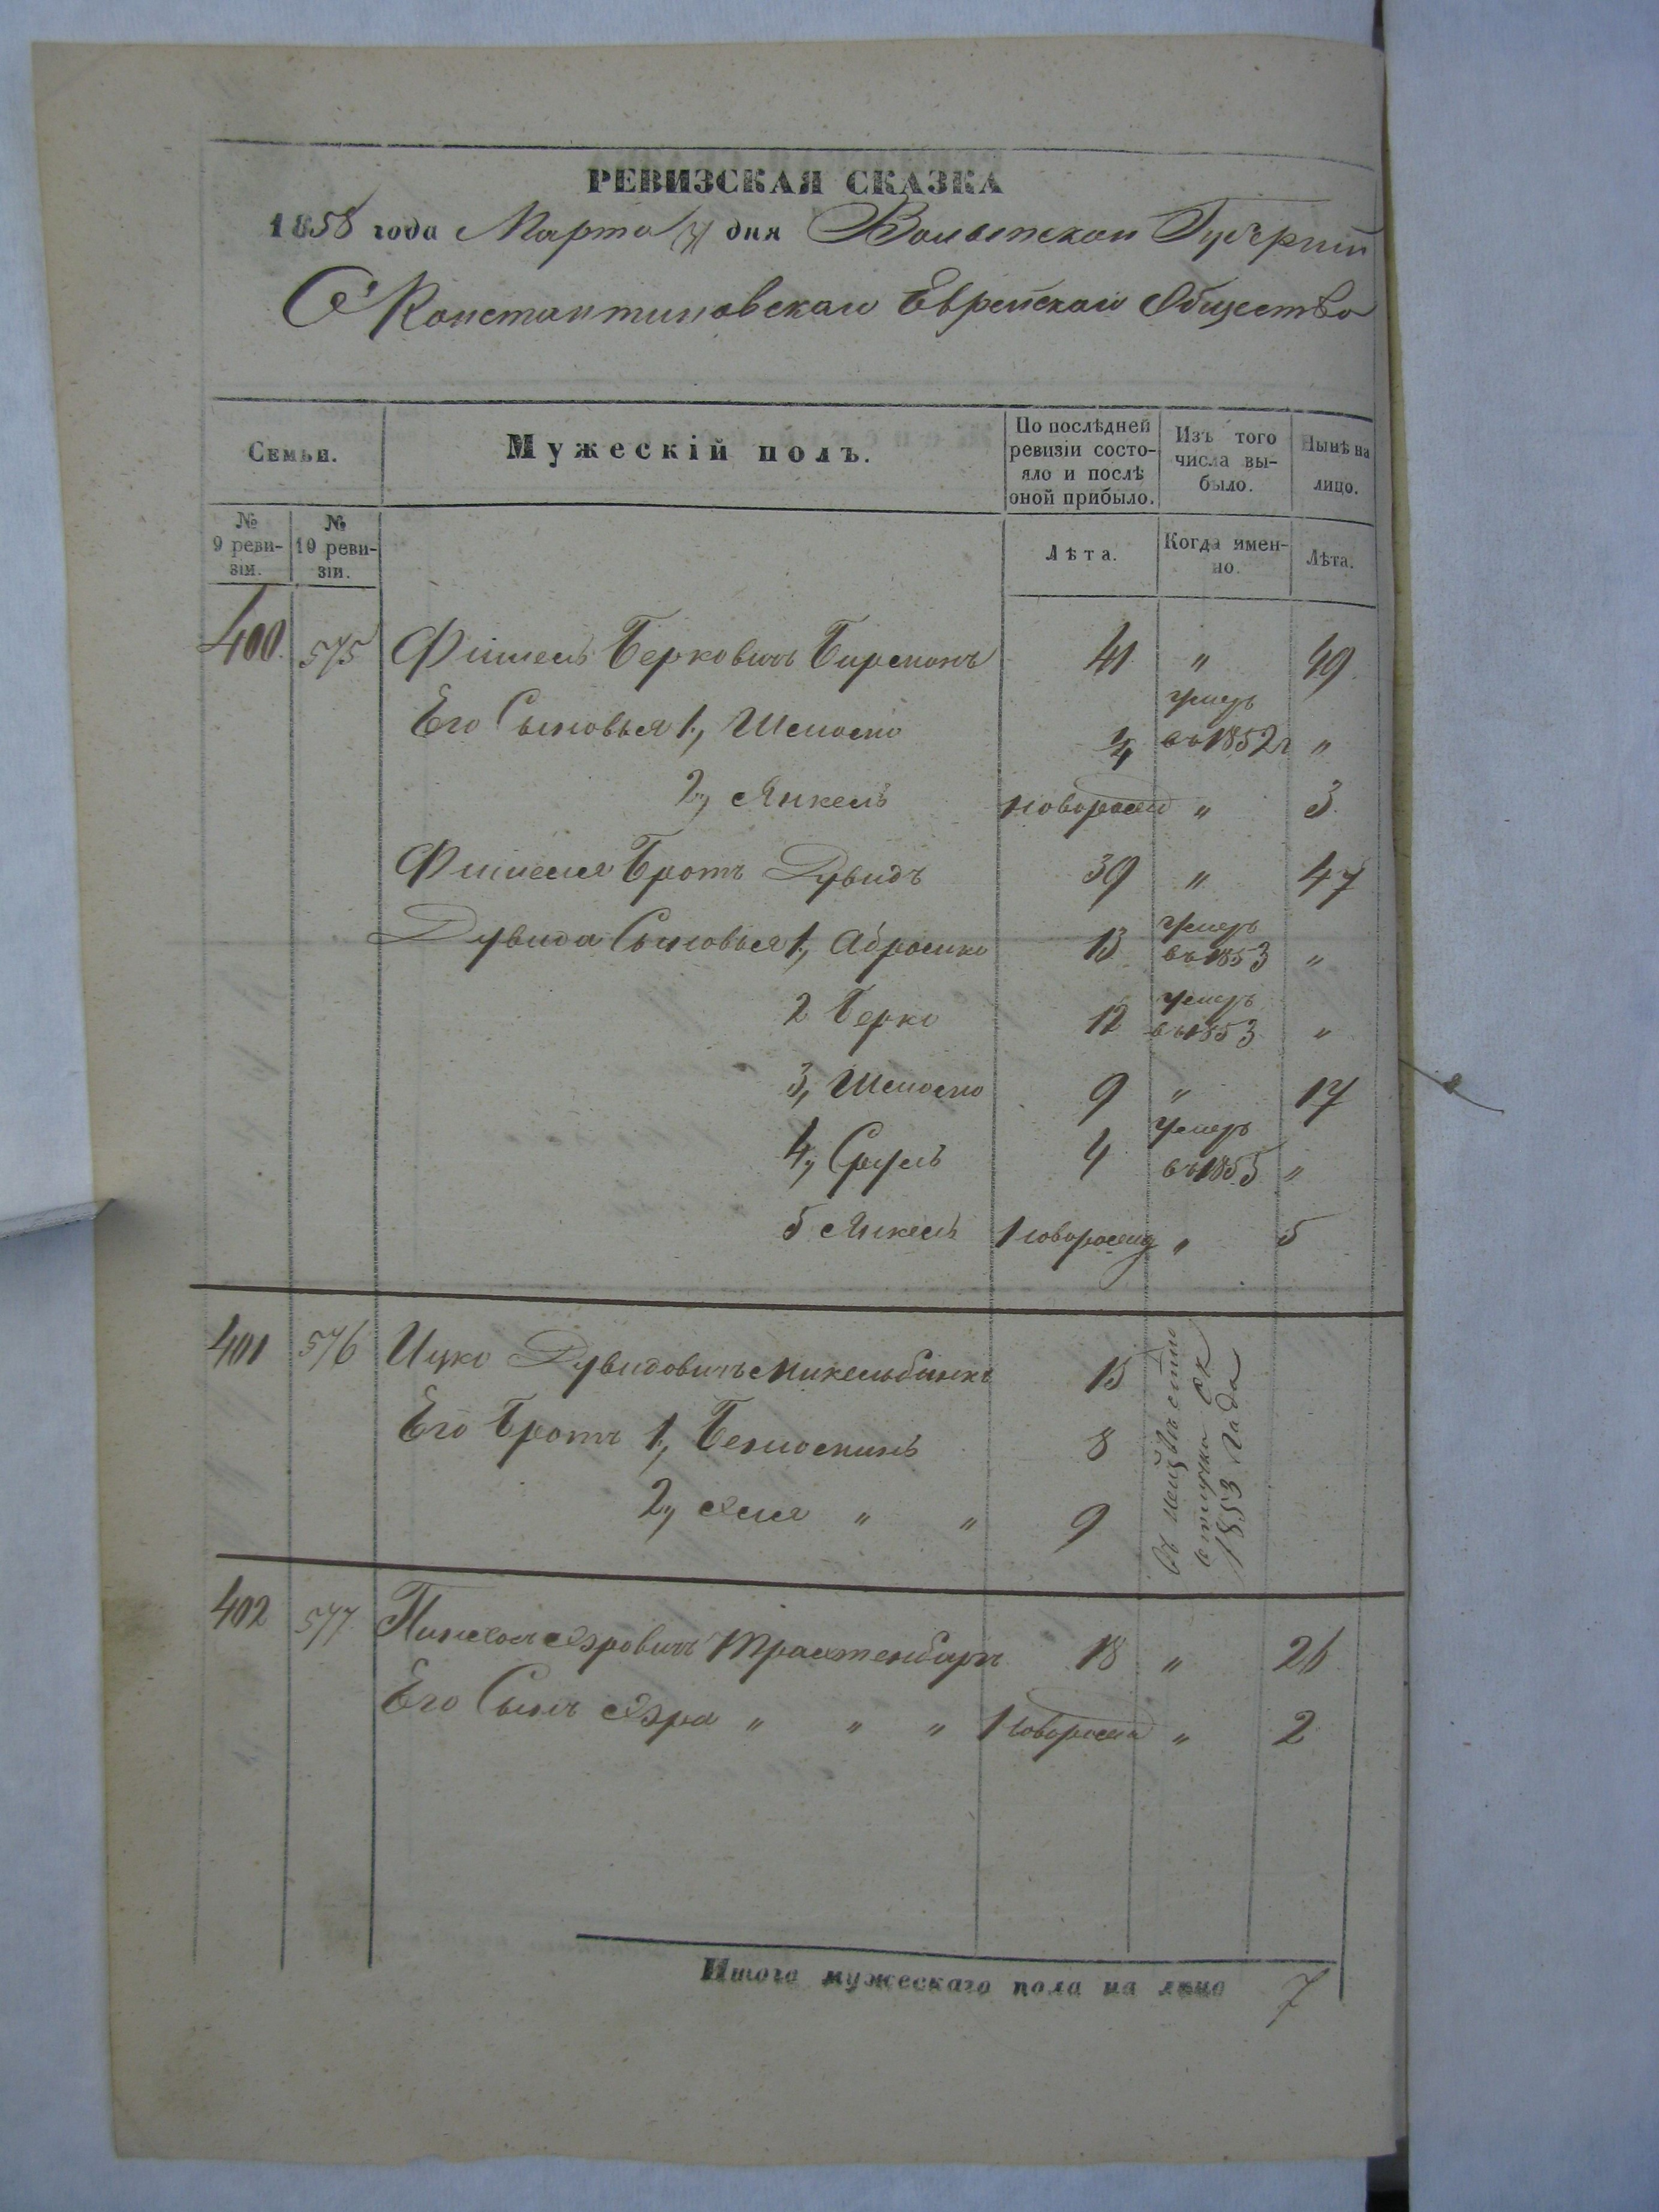 РЕВИЗСКАЯ СКАЗКА
1858 года Марта дня Волынской Губерніи
С. Константиновскаго Еврейскаго Общества
Семьи.
Мужескій полъ.
По послѣдней ревизіи состояло и послѣ оной прибыло.
Изъ того числа выбыло.
Нынѣ на лицо.
№ 9 ревизіи.
№ 10 ревизіи.
Лѣта.
Когда именно.
Лѣта.
400. 575 Фишель Берковичъ 41 " 49.
Его Сыновья 1, Шмоейло умеръ въ 1852 г "
2, Янкель новорожд " 3.
Фишеля Братъ Дувидъ 39 " 47
Дувида Сыновья 1, Абрамко 13 умеръ въ 1853 "
2 Берко 12 умеръ въ 1853 "
3, 9 " 17
4, Сруль 4 умеръ въ 1855 "
5 Янкель новорожд " 5
401 576 Ицко Дувидовичъ 15
Его Братъ 1, 8
2, " " 9
Въ неизвѣстной отлучкѣ съ 1853 года
402 577 Трахтенбаргъ 18 " 26
Его Сынъ " " " новорожд " 2
Итого мужескаго пола на лицо 7